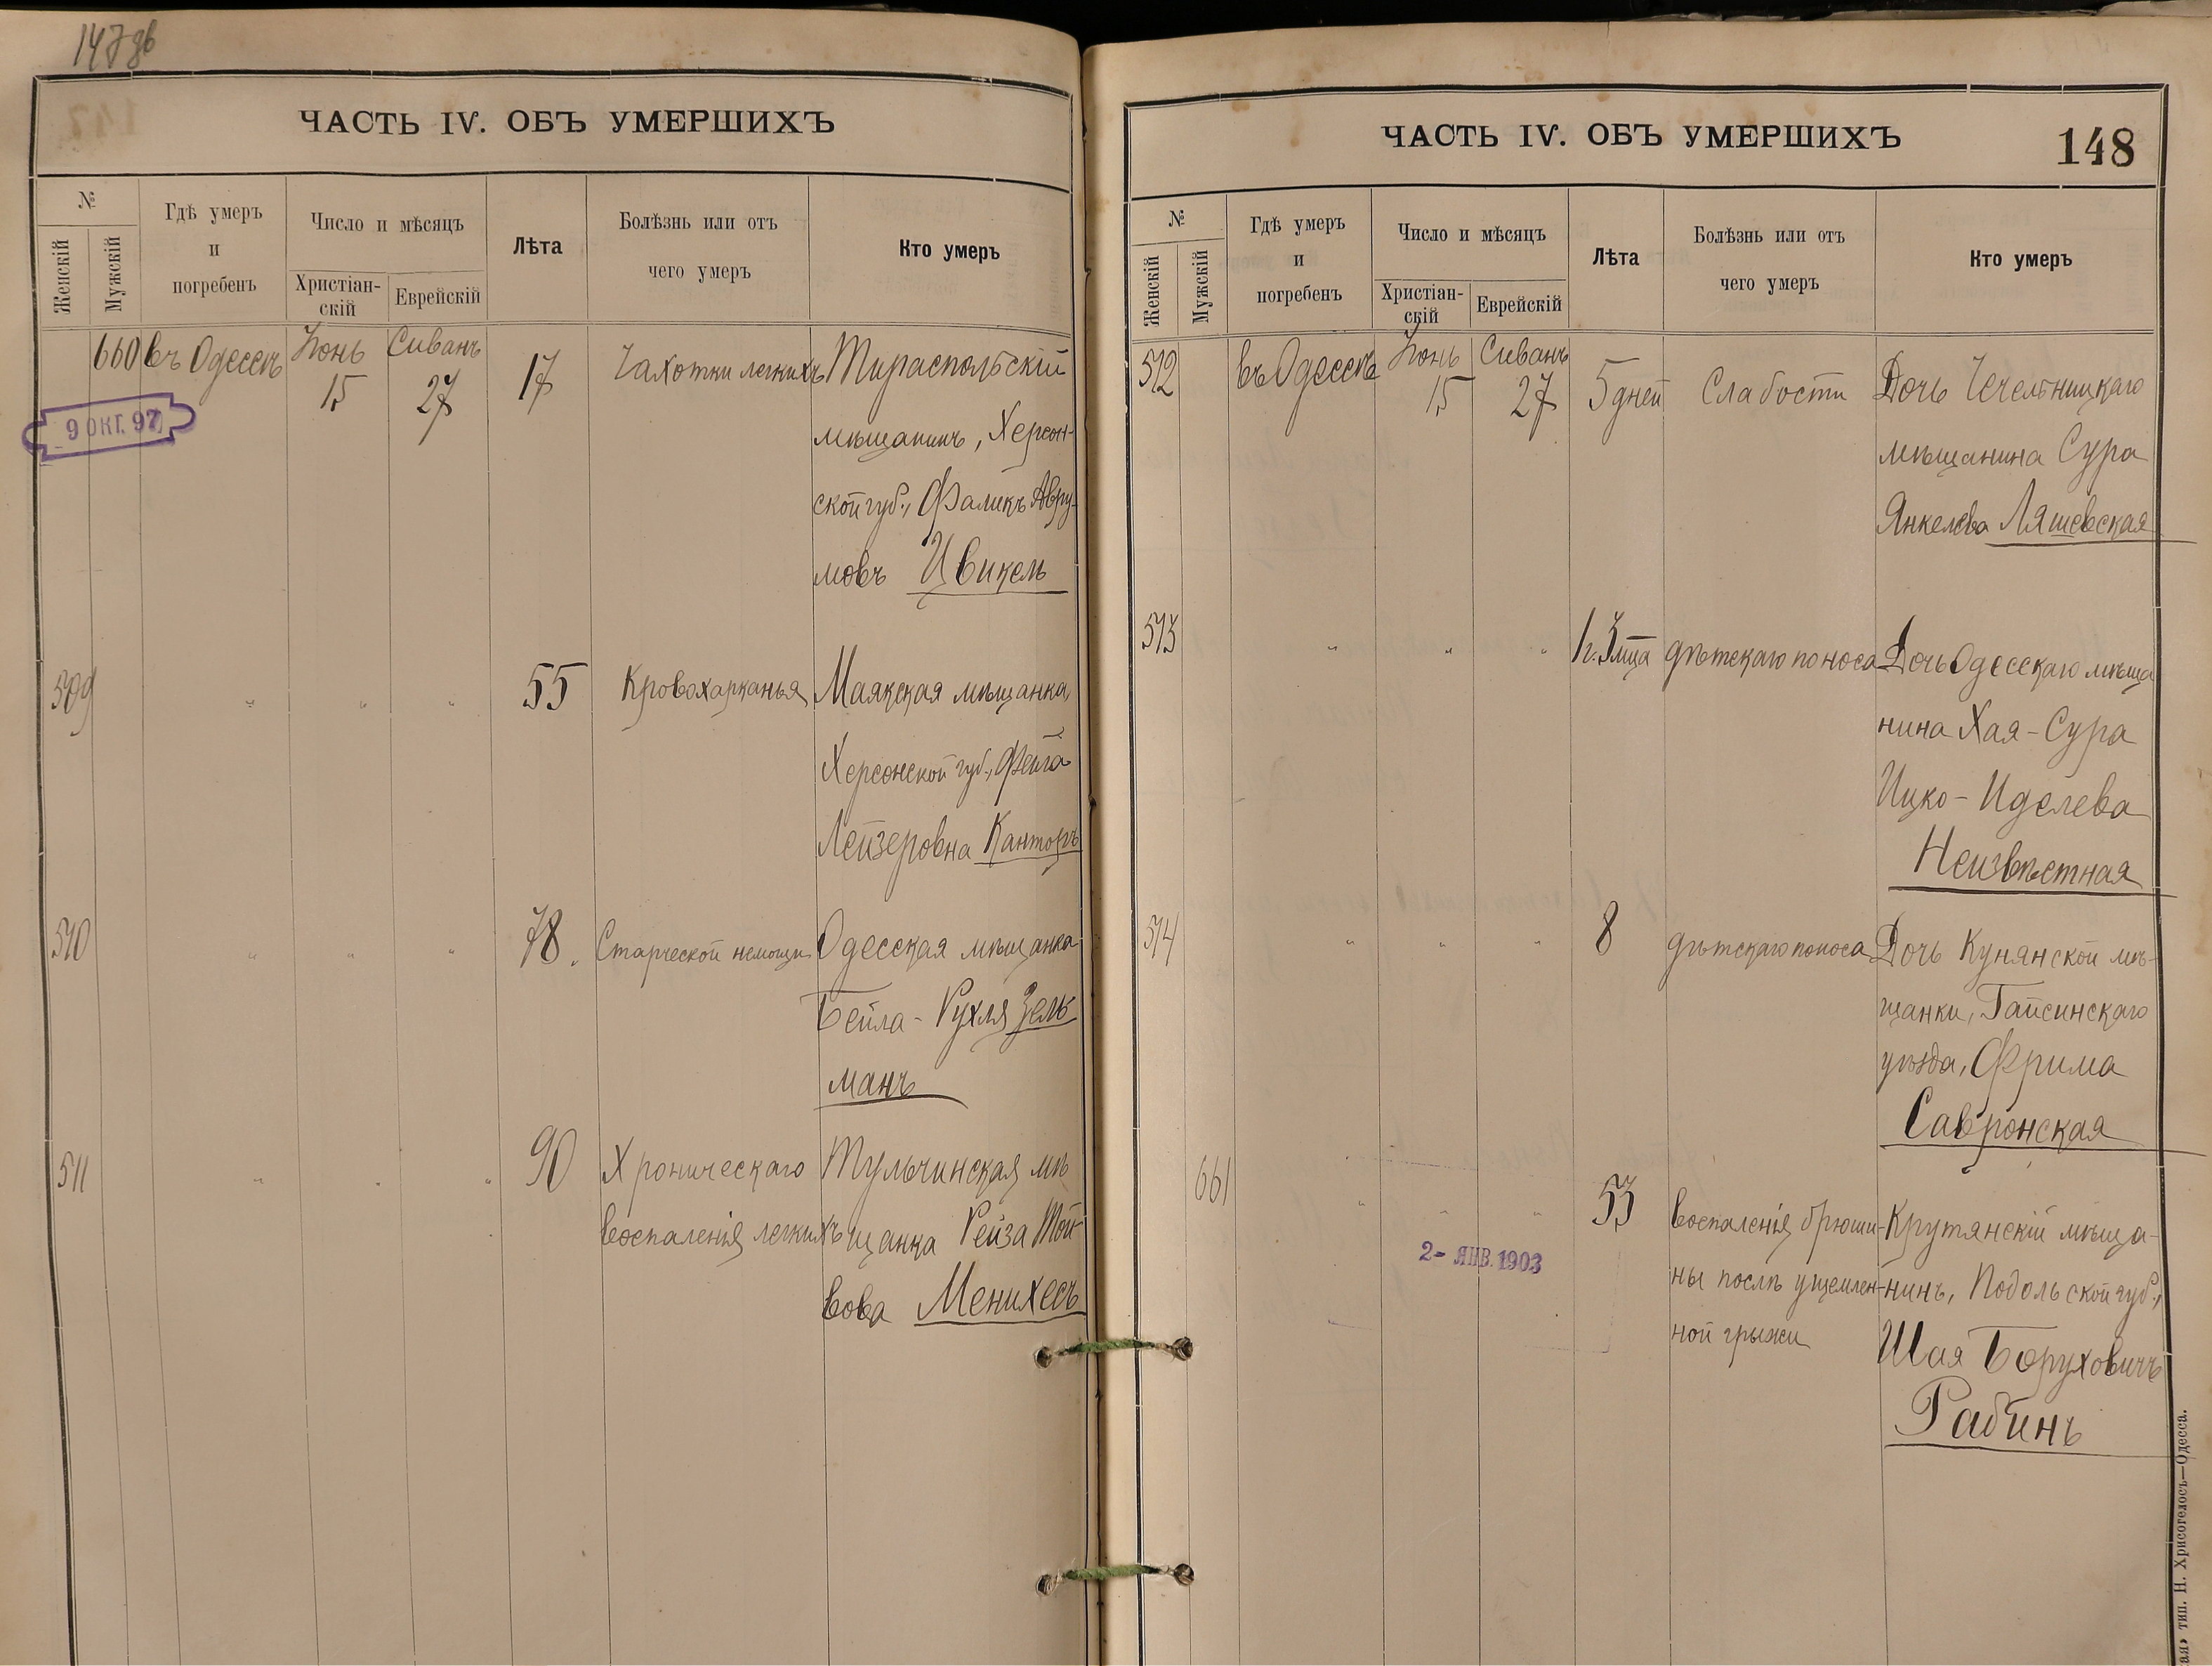 147 об
ЧАСТЬ IV. ОБЪ УМЕРШИХЪ
№
Женскій
Мужскій
Гдѣ умеръ
и
погребенъ
Число и мѣсяцъ
Христіан-
скій
Еврейскій
Лѣта
Болѣзнь или отъ
чего умеръ
Кто умеръ
660 въ Одессѣ Іюнь 15 Сиванъ 27 17 Чахотки легкихъ Тираспольскій
мѣщанинъ, Херсон-
ской губ., Фаликъ Авру-
мовъ Цвикель
9 ОКТ. 97
509 " " " 55 Кровохарканья Маякская мѣщанка,
Херсонской губ., Фейга
Лейзеровна Канторъ
510 " " " 78. Старческой немощи Одесская мѣщанка
Бейла-Рухля Зель
манъ
511 " " " 90 Хроническаго Тульчинская мѣ
воспаленія легкихъ щанка Рейза
вова Менихесъ
ЧАСТЬ IV. ОБЪ УМЕРШИХЪ
148
№
Женскій
Мужскій
Гдѣ умеръ
и
погребенъ
Число и мѣсяцъ
Христіан-
скій
Еврейскій
Лѣта
Болѣзнь или отъ
чего умеръ
Кто умеръ
512 въ Одессѣ Іюнь 15 Сиванъ 27 5 дней Слабости Дочь Чечельницкаго
мѣщанина Сура
Янкелева Ляшевская
513 " " " 1 г. 3 мца дѣтскаго поноса Дочь Одесскаго мѣща
нина Хая-Сура
Ицко-Иделева
Неизвѣстная
514 " " " 8 дѣтскаго поноса Дочь Кунянской мѣ-
щанки, Гайсинскаго
уѣзда, Фрима
Савронская
661 " " " 53 воспаленія брюши- Крутянскій мѣща-
ны послѣ ущемлен- нинъ, Подольской губ.,
ной грыжи Шая Боруховичъ
Рабинъ
2- ЯНВ. 1903
тип. Н. Хрисогелосъ—Одесса.